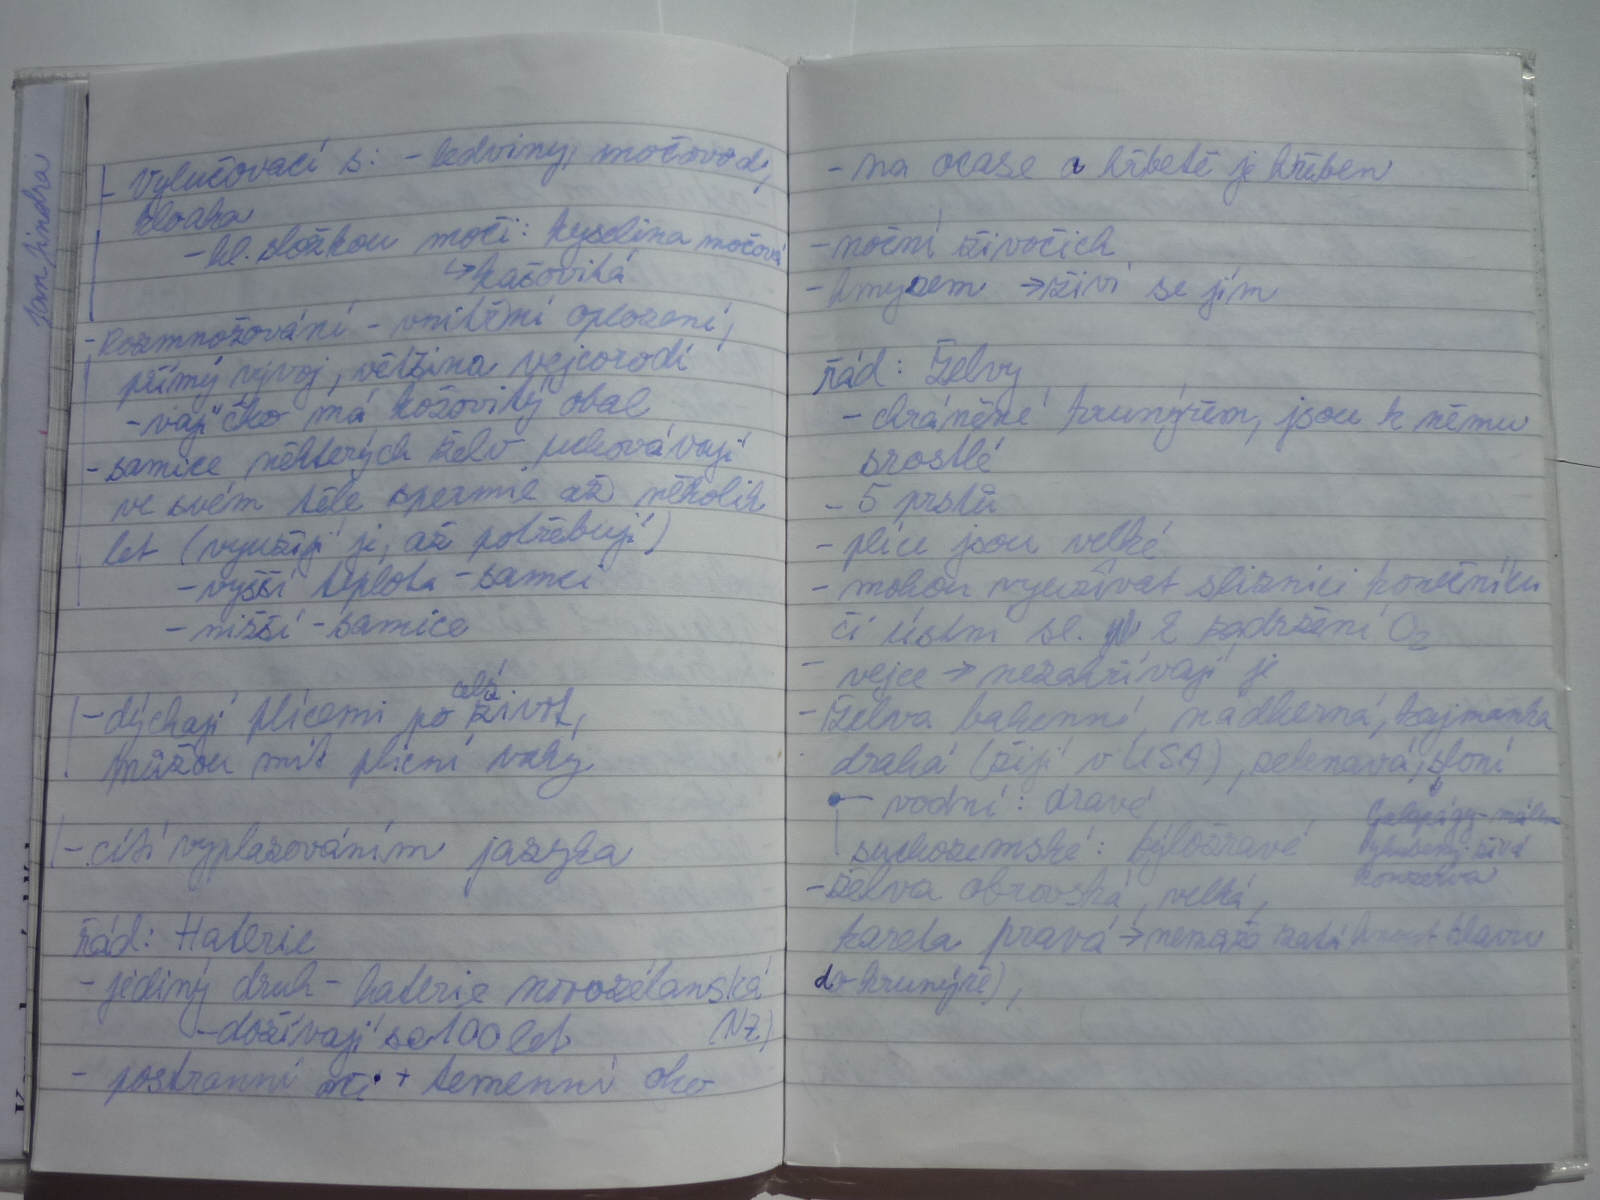 Jan Jindra
- Vylučovací s: - ledviny, močovod,
kloaka
- hl. složkou moči: kyselina močová
↳ kašovitá
- Rozmnožování - vnitřní oplození,
přímý vývoj, většina vejcorodí
- vajíčko má kožovitý obal
- samice některých želv uchovávají
ve svém těle spermie až několik
let (využijí je, až potřebují)
- vyšší teplota - samci
- nižší - samice
- dýchají plícemi po celý život,
můžou mít plicní vaky
- cítí vyplazováním jazyka
řád: Haterie
- jediný druh - haterie novozélanská
- dožívají se 100 let (NZ)
- postranní oči + temenní oko
- na ocase a hřbetě je hřeben
- noční živočich
- hmyzem → živí se jím
řád: Želvy
- chráněné krunýřem, jsou k němu
srostlé
- 5 prstů
- plíce jsou velké
- mohou využívat sliznici konečníku
či ústní sl. k zadržení O2
- vejce → nezahřívají je
- Želva bahenní, nádherná, kajmanka
dravá (žijí v USA), zelenavá, sloní
- vodní: dravé
Galapágy - málem
vyhubeny živá
konzerva
suchozemské: býložravé
- želva obrovská, velká,
kareta pravá → nemůže zatáhnout hlavu
do krunýře),